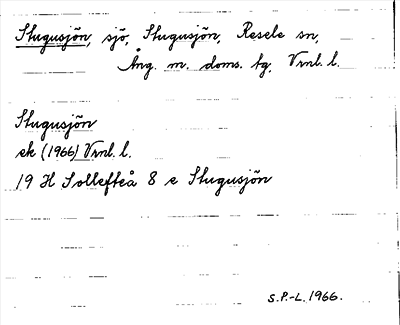 Stugusjön, sjö, Stugusjön, Resele sn,
Ång. m. doms. tg, Vrnl. l.
Stugusjön
ek (1966) Vrnl. l.
19 H Sollefteå 8 e Stugusjön
S.P.-L. 1966.